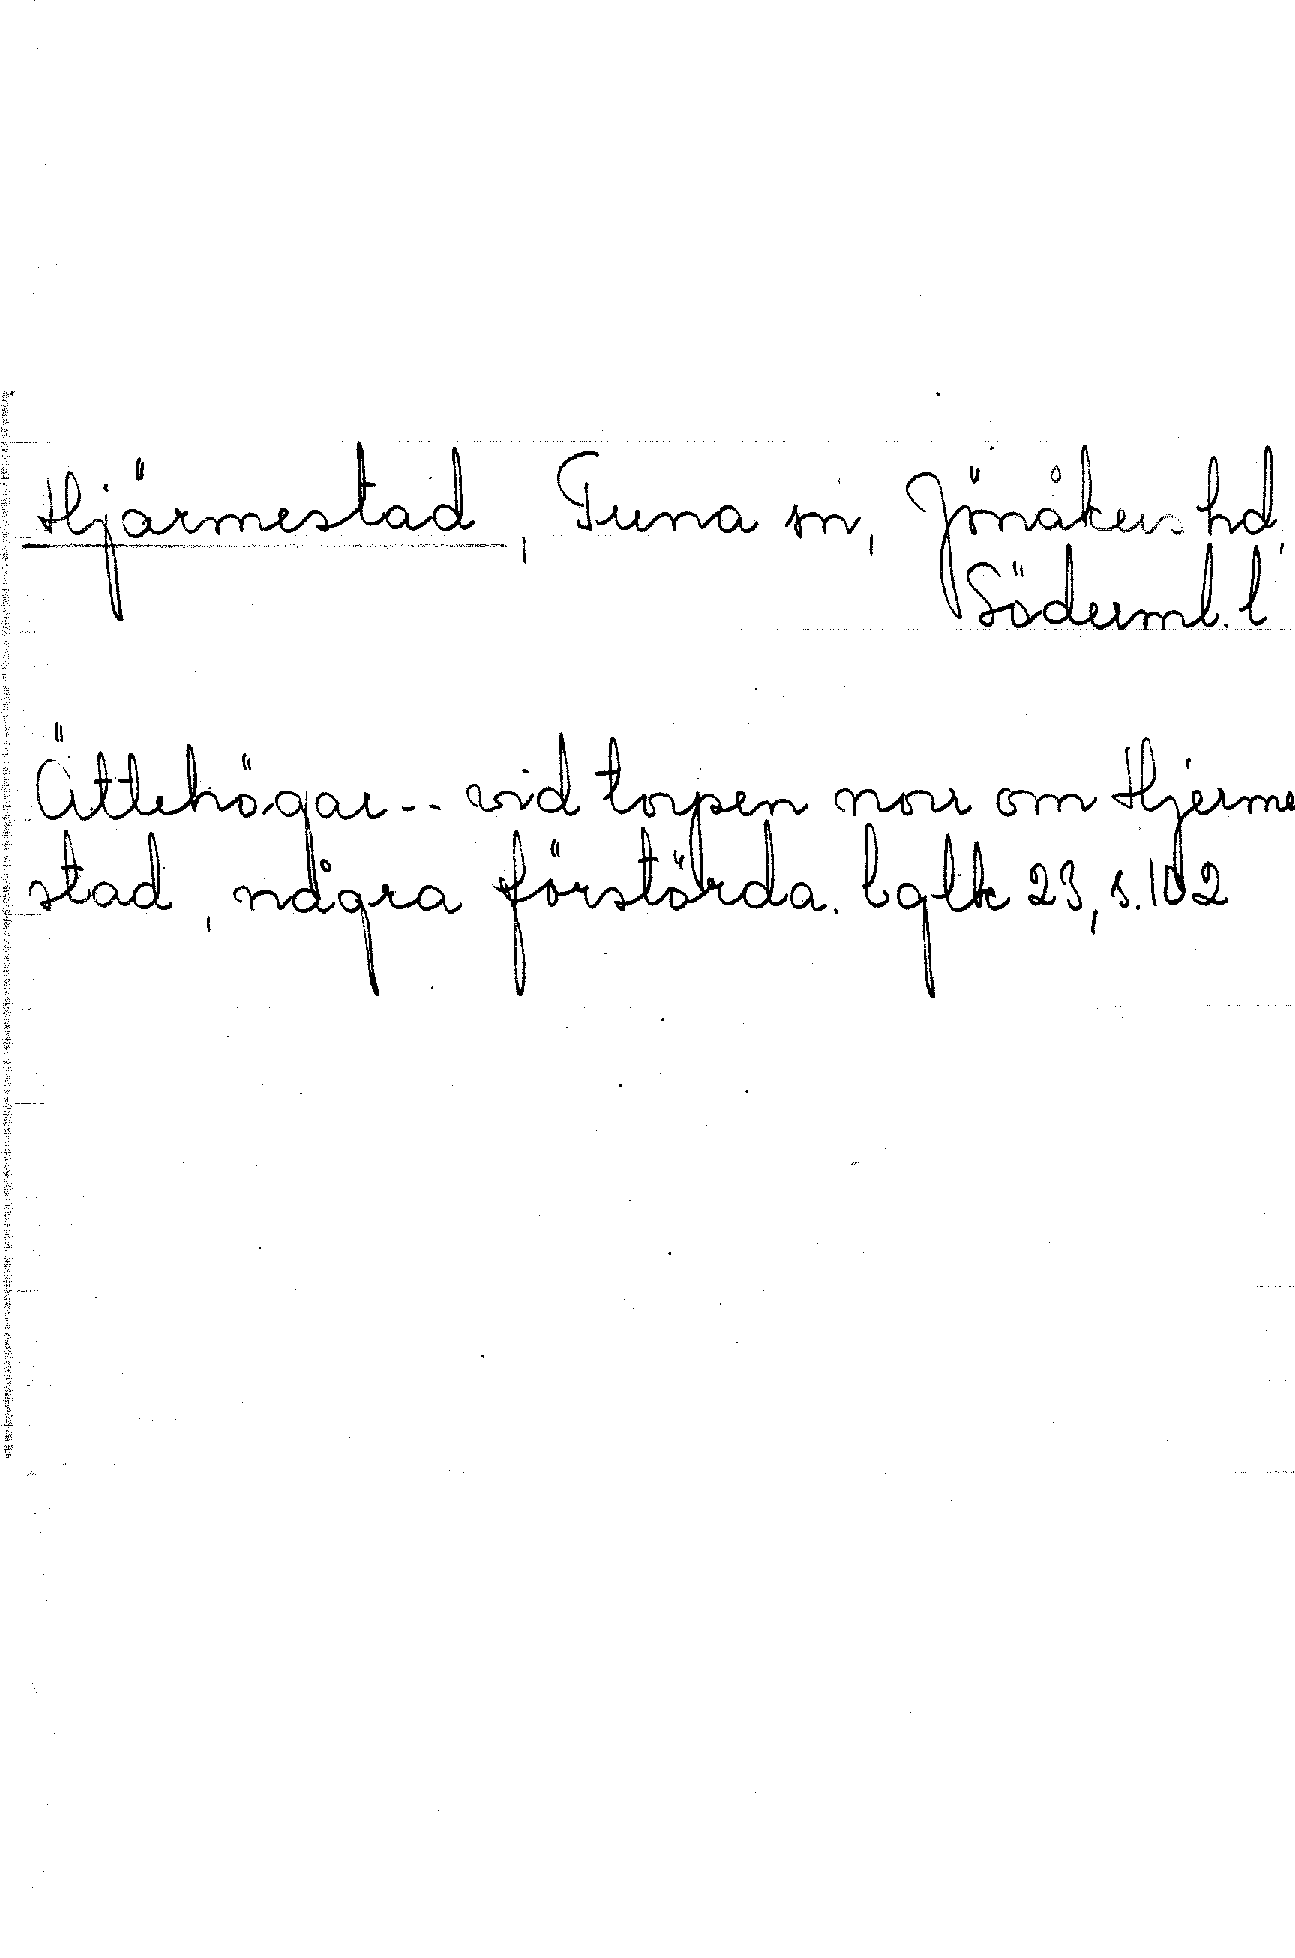 Hjärmestad, Tuna sn, Jönåkers hd,
Söderml. l
Ättehögar-- vid torpen norr om Hjerme
stad, några förstörda. bglk 23, s.102